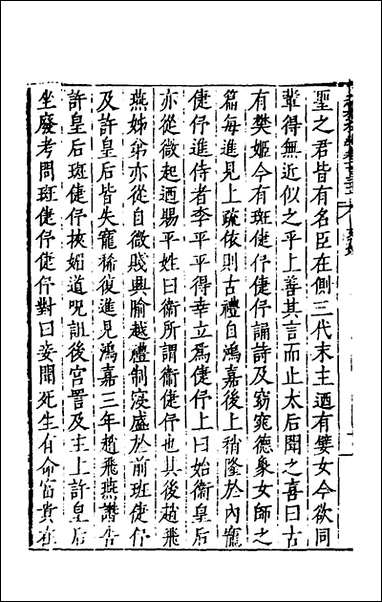 聖之君皆有名臣在側三代末主廼有嬖女今欲同
輦得無近似之乎上善其言而止太后聞之喜曰古
有樊姬今有班倢伃倢伃誦詩及窈窕德象女師之
篇每進見上疏依則古禮自鴻嘉後上稍隆於內寵
倢伃進侍者李平平得幸立爲倢伃上曰始衞皇后
亦從微起廼賜平姓曰衞所謂衞倢伃也其後趙飛
燕姊弟亦從自微賤興踰越禮制寖盛於前班倢伃
及許皇后皆失寵稀復進見鴻嘉三年趙飛燕譖告
許皇后班倢伃挾媚道呪詛後宮詈及主上許皇后
坐廢考問班倢伃倢伃對曰妾聞死生有命富貴在